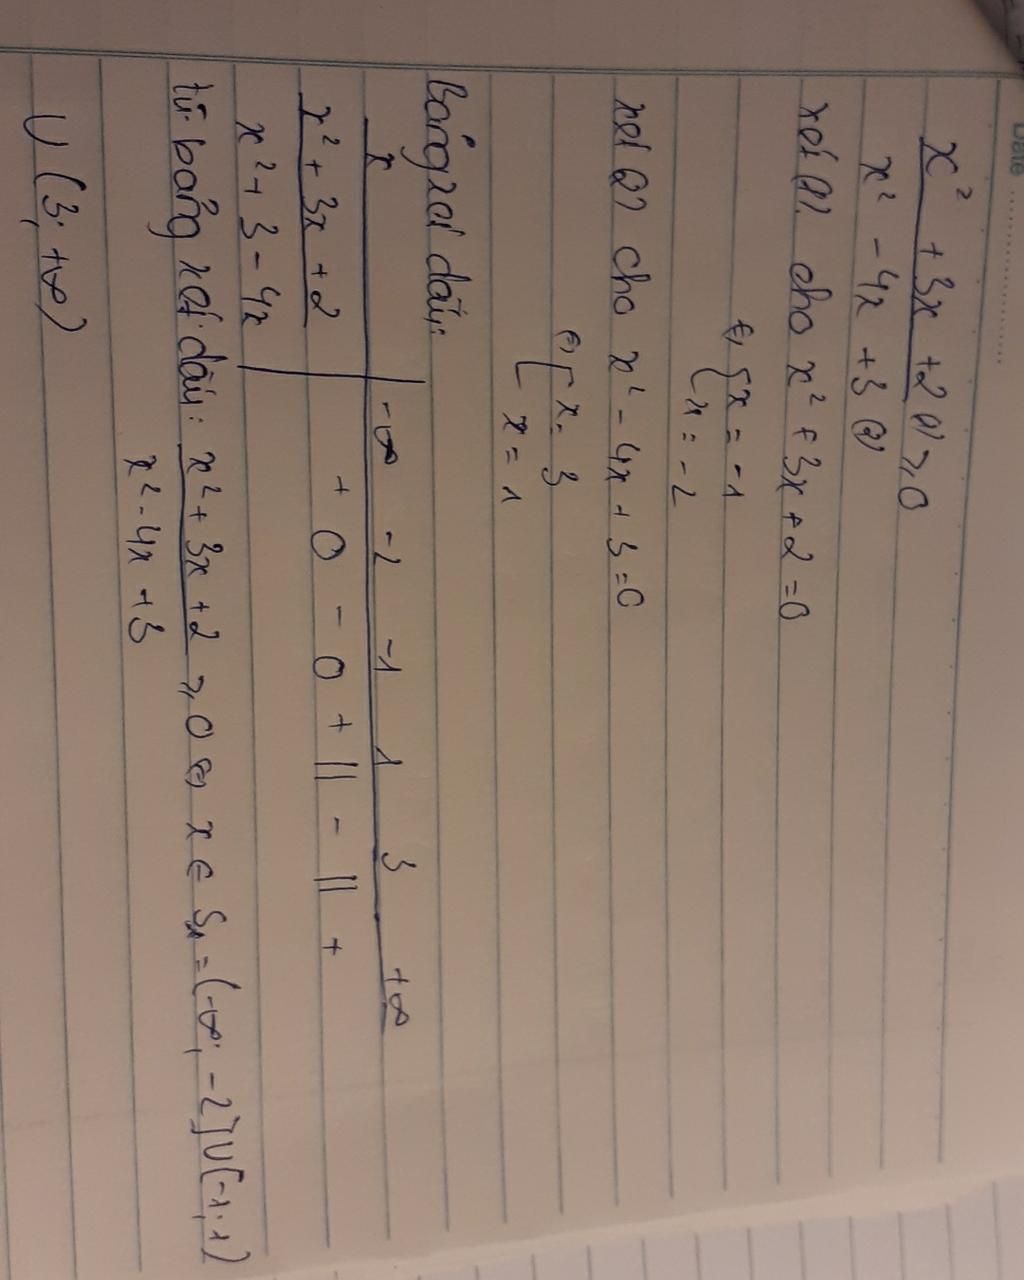 Date
x² + 3x + 2 (1) ⩾ 0
x² - 4x + 3 (2)
xét (1) cho x² + 3x + 2 = 0
⇔ { x = -1
x = -2
xét (2) cho x² - 4x + 3 = 0
⇔ [ x = 3
x = 1
Bảng xét dấu:
x | -∞ -2 -1 1 3 +∞
x² + 3x + 2 | + 0 - 0 + || - || +
x² + 3 - 4x
từ bảng xét dấu: x² + 3x + 2 ⩾ 0 ⇔ x ∈ S₁ = (-∞; -2] ∪ [-1; 1)
x² - 4x + 3
∪ (3; +∞)